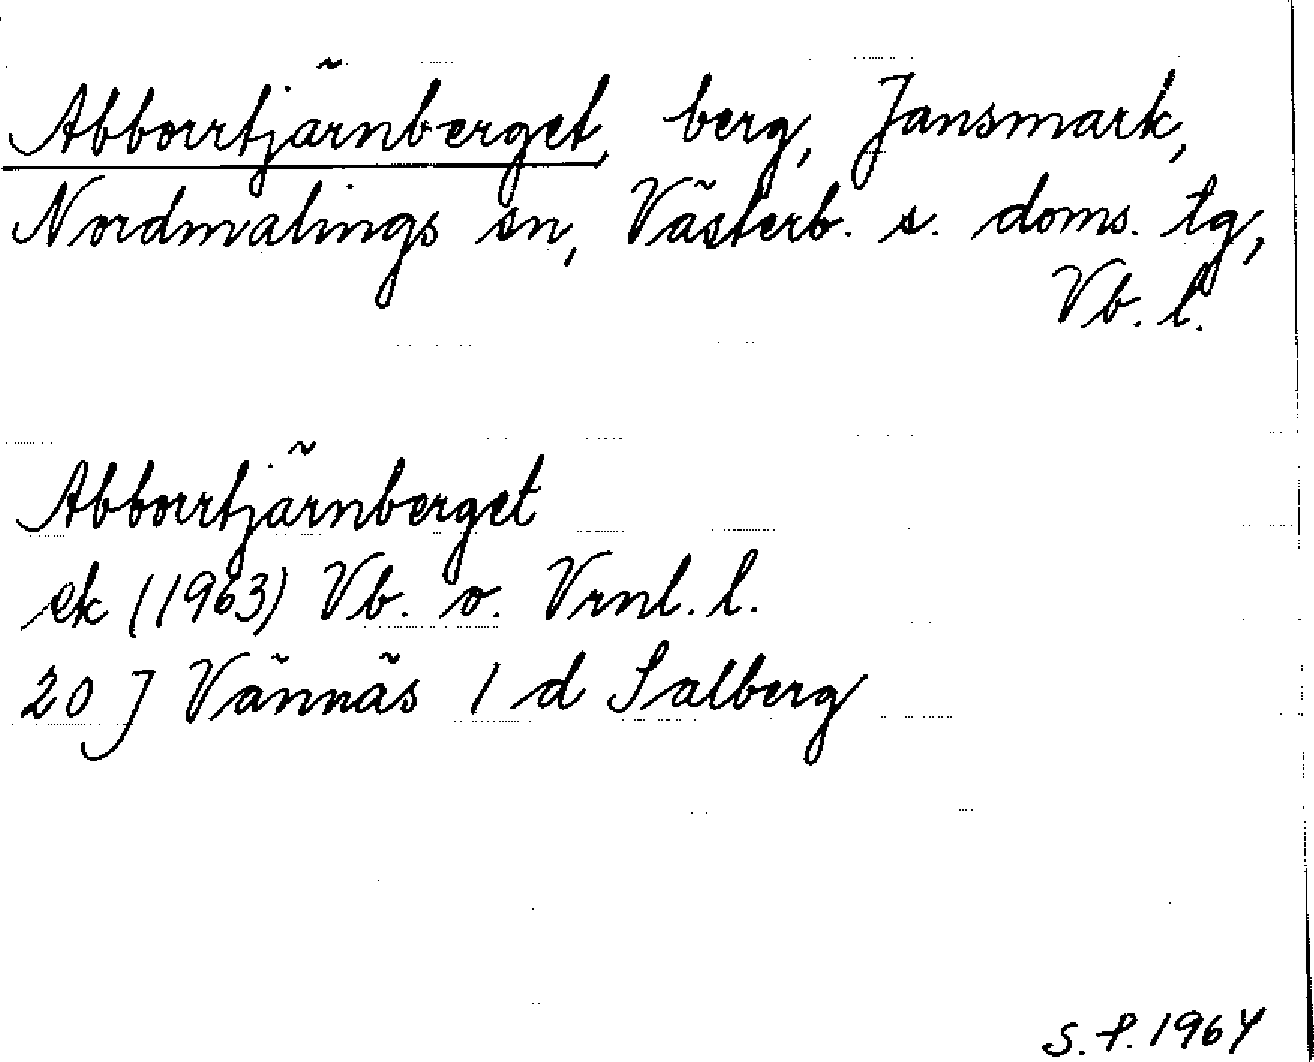 Abborrtjärnberget, berg, Jansmark,
Nordmalings sn, Västerb. s. doms. tg,
Vb. l.
Abborrtjärnberget
ek (1963) Vb. o. Vrnl. l.
20 J Vännäs 1 d Salberg
S. P. 1964